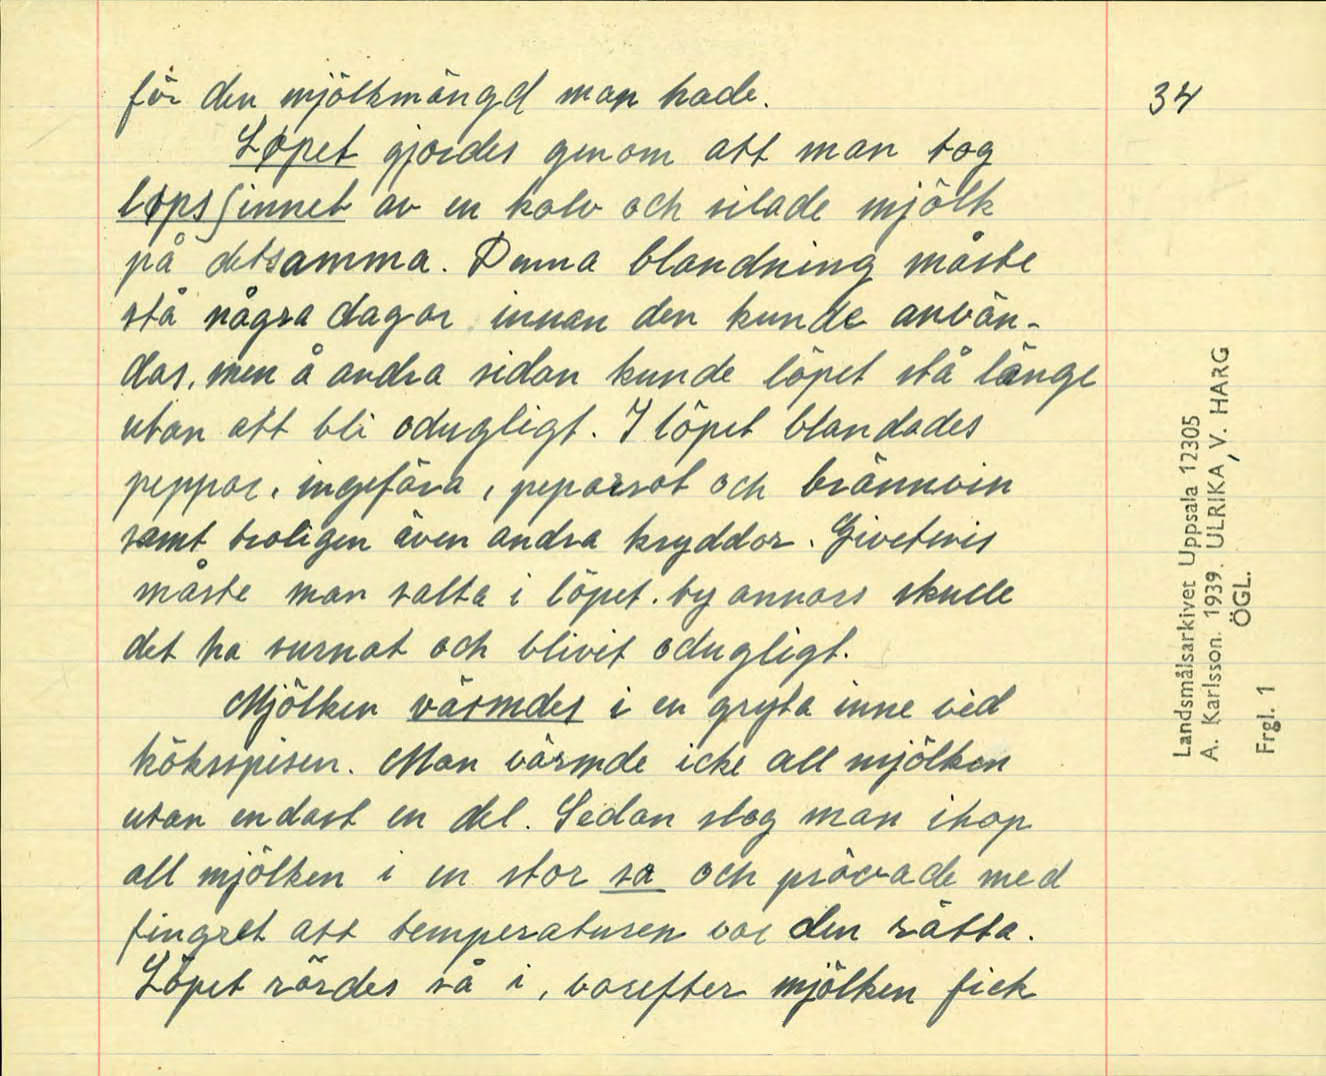 för den mjölkmängd man hade.
34
Løpet gjordes genom att man tog
løpsʃinnet av en kalv och silade mjölk
på detsamma. Denna blandning måste
stå några dagar innan den kunde använ-
das, men å andra sidan kunde löpet stå länge
utan att bli odugligt. I löpet blandades
peppar, ingefära, peparrot och brännvin
samt troligen även andra kryddor. Givetvis
måste man salta i löpet. ty annars skulle
det ha surnat och blivit odugligt.
Mjölken värmdes i en gryta inne vid
köksspisen. Man värmde icke all mjölken
utan endast en del. Sedan slog man ihop
all mjölken i en stor sa och prövade med
fingret att temperaturen var den rätta.
Löpet rördes så i, varefter mjölken fick
Landsmålsarkivet Uppsala 12305
A. Karlsson. 1939. ULRIKA, V. HARG
ÖGL.
Frgl. 1